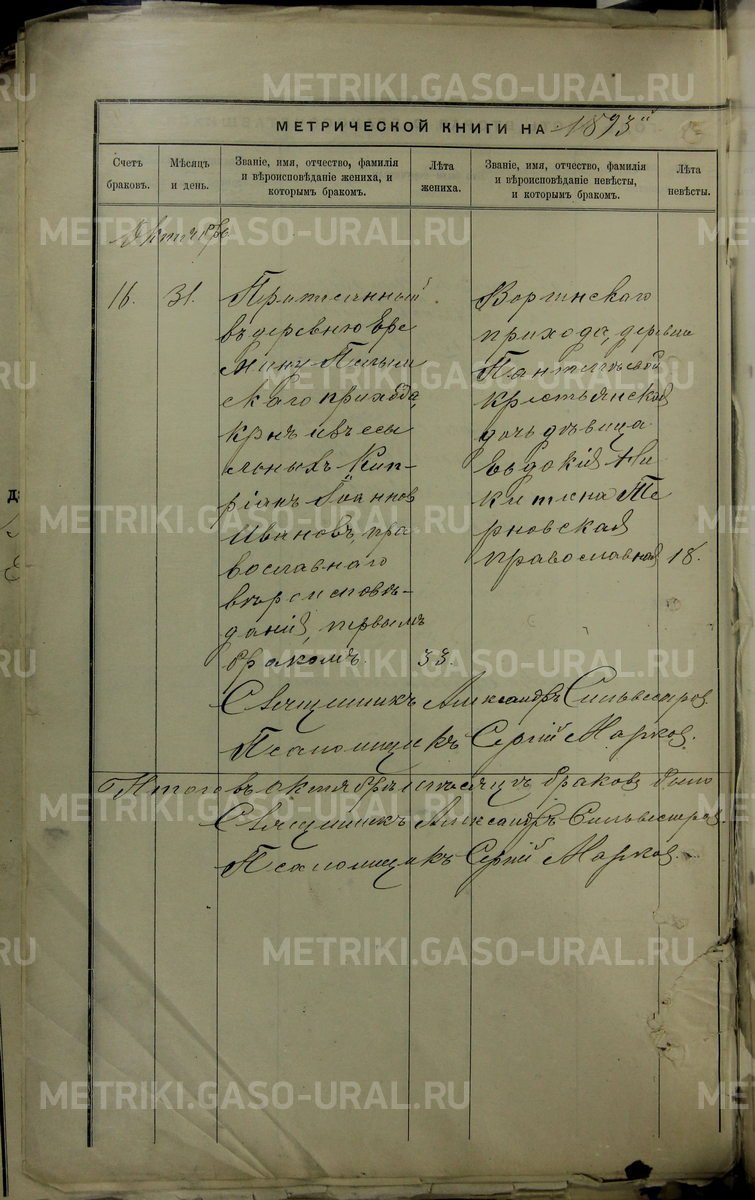 METRIKI.GASO-URAL.RU
МЕТРИЧЕСКОЙ КНИГИ НА 1893й
Счетъ браковъ.
Мѣсяцъ и день.
Званіе, имя, отчество, фамилія
и вѣроисповѣданіе жениха, и
которымъ бракомъ.
Лѣта
жениха.
Званіе, имя, отчество, фамилія
и вѣроисповѣданіе невѣсты,
и которымъ бракомъ.
Лѣта
невѣсты.
Октябрь
16.
31.
Приписанный
въ деревню Ере
мину Пелым
скаго прихода,
крнъ изъ ссы
льныхъ Кип-
ріанъ Іоанновъ
Ивановъ, пра
вославнаго
вѣроисповѣ-
данія, первымъ
бракомъ.
33.
прихода, деревни
крестьянская
дочь дѣвица
Евдокія Ни
китина Те
рновская
православная
18.
Священникъ Александръ Сильвестровъ
Псаломщикъ Сергій Марковъ.
Итого въ октябрѣ мѣсяцѣ браковъ было
Священникъ Александръ Сильвестровъ.
Псаломщикъ Сергій Марковъ.